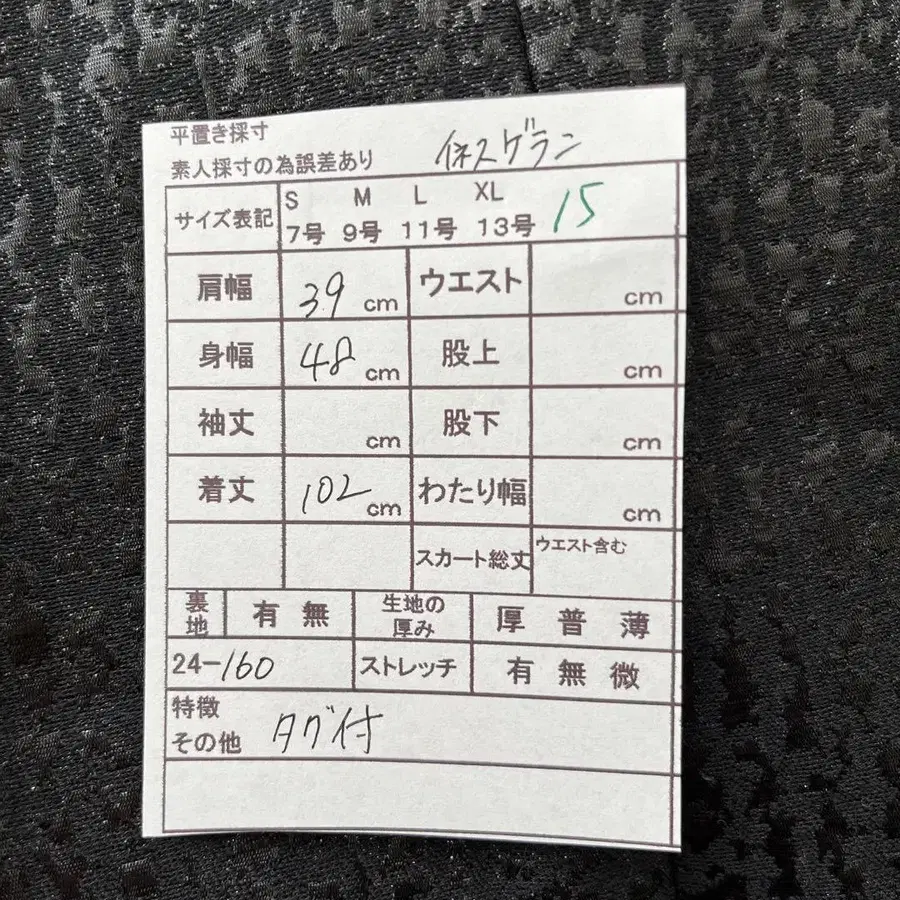 平置き採寸
素人採寸の為誤差あり イネスゲラン
サイズ表記 S M L XL 15
7号 9号 11号 13号
肩幅 39 cm ウエスト cm
身幅 48 cm 股上 cm
袖丈 cm 股下 cm
着丈 102 cm わたり幅 cm
スカート総丈 ウエスト含む
裏地 有 無 生地の厚み 厚 普 薄
24-160 ストレッチ 有 無 微
特徴
その他 タグ付